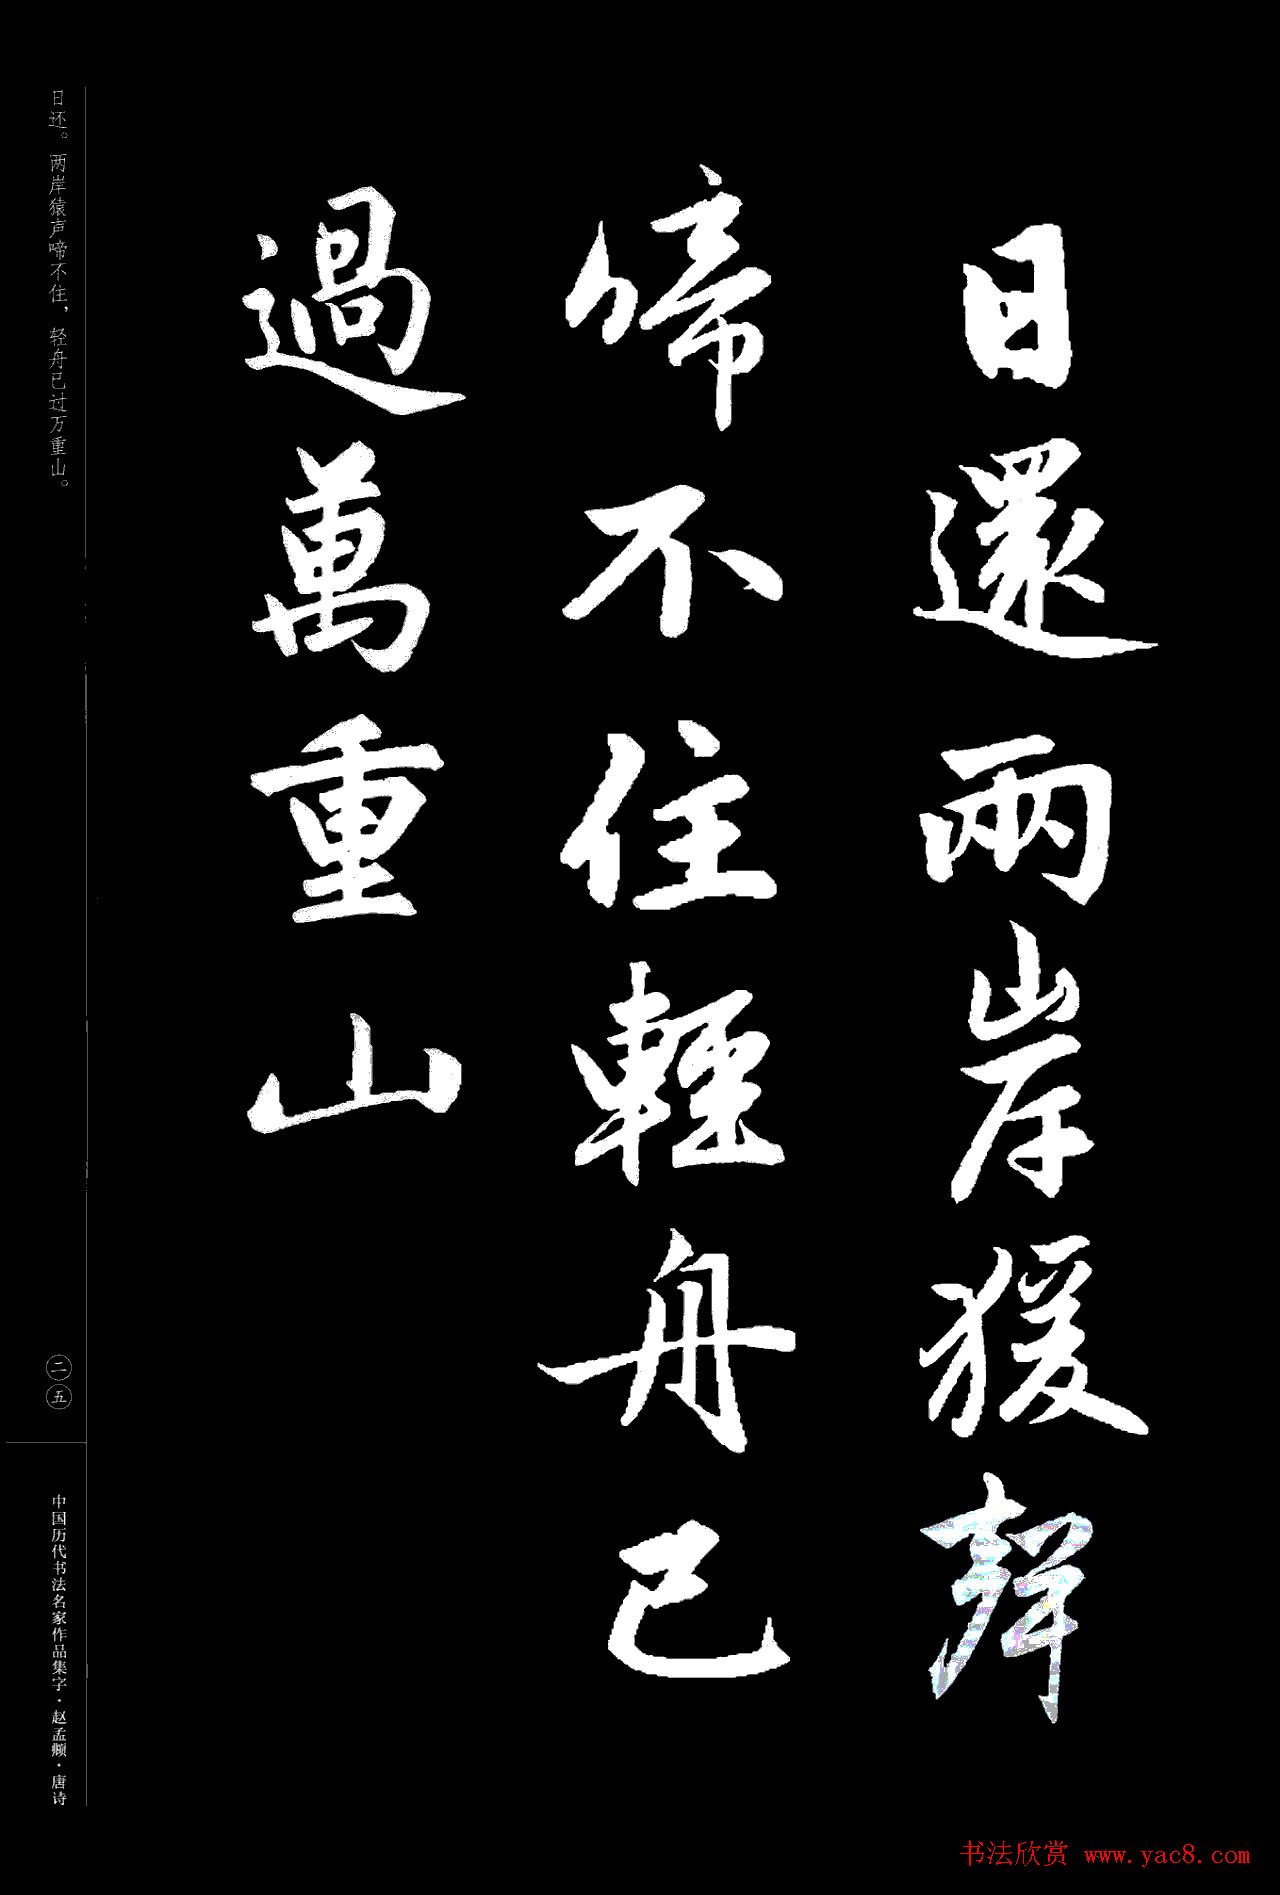 日還兩岸猨聲
啼不住輕舟已
過萬重山
日还。两岸猿声啼不住，轻舟已过万重山。
二五
中国历代书法名家作品集字·赵孟頫·唐诗
书法欣赏 www.yac8.com